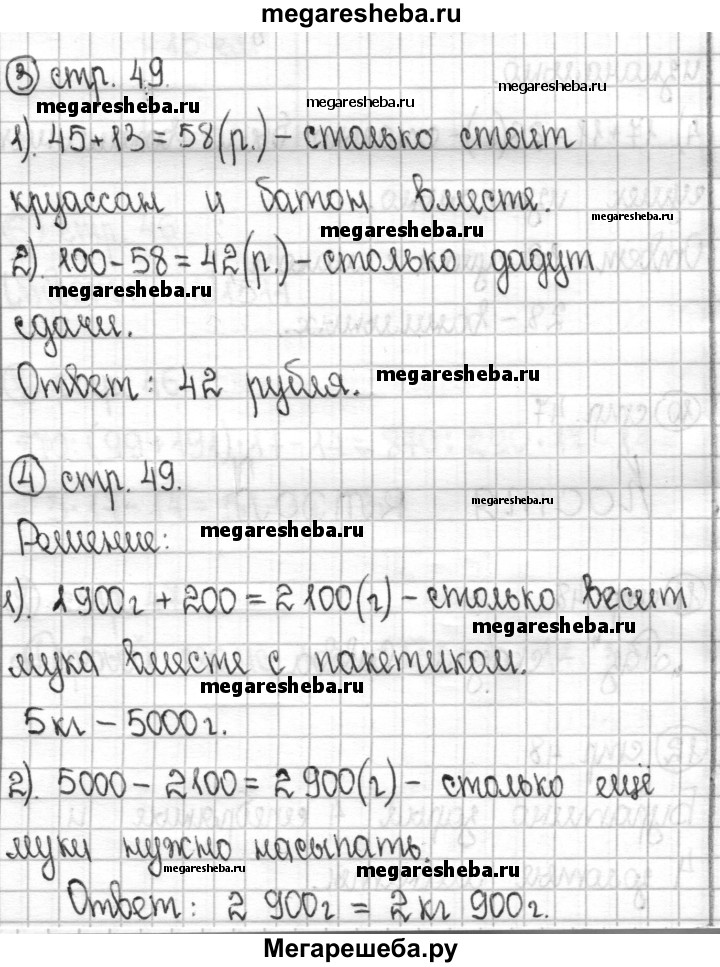 megaresheba.ru
③ стр. 49.
megaresheba.ru
megaresheba.ru
1). 45+13=58(р.)-столько стоит
круассан и батон вместе.
megaresheba.ru
megaresheba.ru
2). 100-58=42(р.)-столько дадут
megaresheba.ru
сдачи.
Ответ: 42 рубля.
megaresheba.ru
④ стр. 49.
megaresheba.ru
Решение:
megaresheba.ru
1). 1900г + 200 = 2100(г)-столько весит
megaresheba.ru
мука вместе с пакетиком.
megaresheba.ru
5кг - 5000г.
2). 5000 - 2100 = 2900(г)- столько ещё
муки нужно насыпать.
megaresheba.ru
megaresheba.ru
Ответ: 2 900г = 2кг 900г.
Мегарешеба.ру